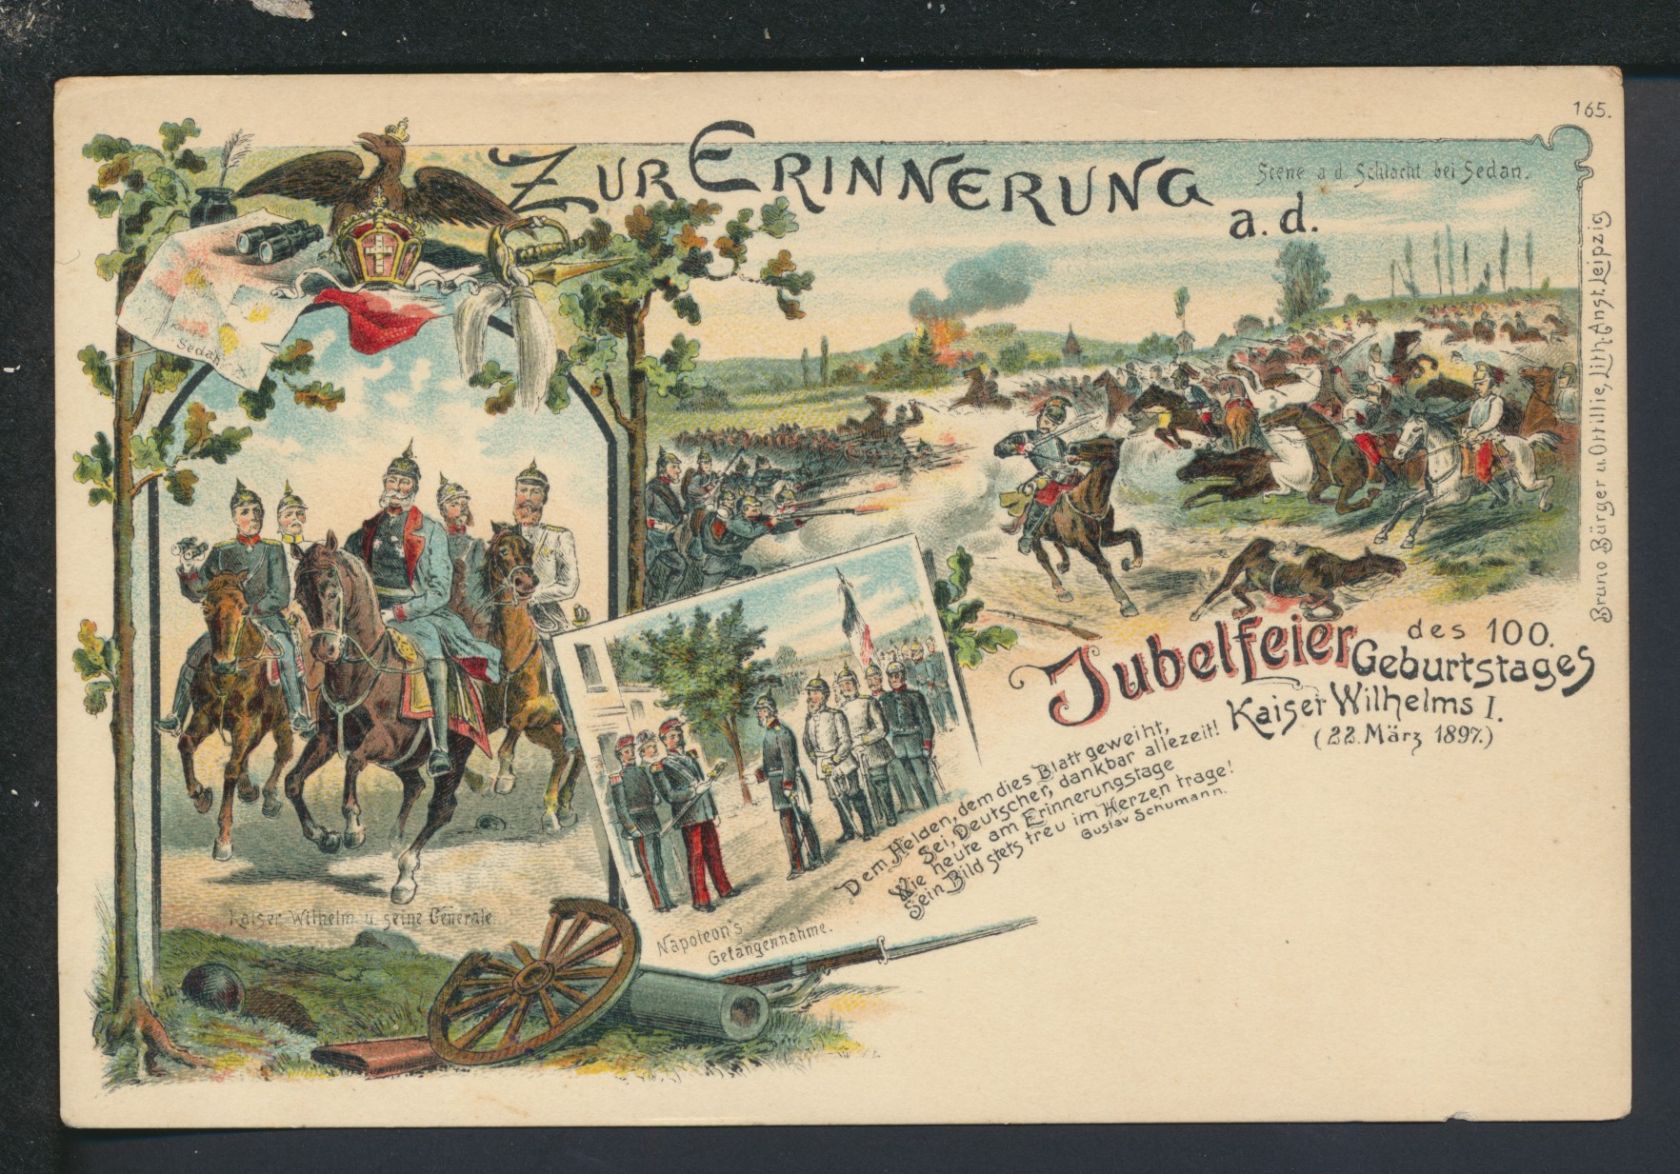 165.
ZUR ERINNERUNG
a. d.
Scene a d. Schlacht bei Sedan.
Sedan
Jubelfeier des 100.
Geburtstages
Kaiser Wilhelms I.
(22. März 1897.)
Dem Helden, dem dies Blatt geweiht,
Sei, Deutscher, dankbar allezeit!
Wie heute am Erinnerungstage
Sein Bild stets treu im Herzen trage!
Gustav Schumann.
Kaiser Wilhelm u. seine Generale.
Napoleon's
Gefangennahme.
Bruno Bürger u. Ottilie, Lith. Anst. Leipzig